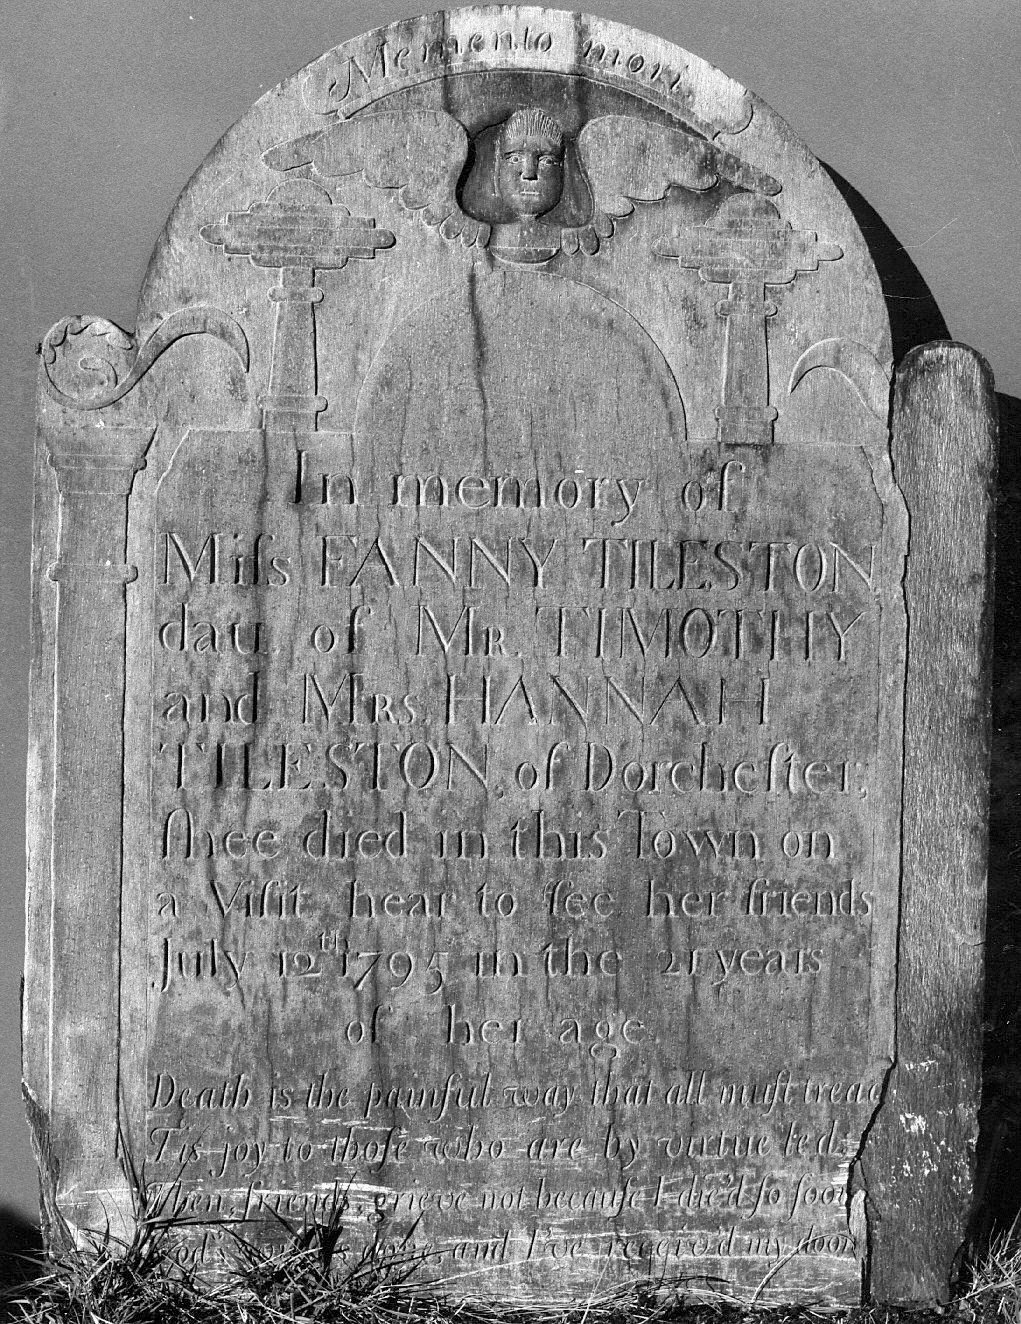 Memento mori
In memory of
Miſs FANNY TILESTON
dau. of Mr. TIMOTHY
and Mrs. HANNAH
TILESTON, of Dorcheſter;
ſhee died in this Town on
a Viſit hear to ſee her friends
July 12th 1795 in the 21 years
of her age.
Death is the painful way that all muſt tread
Tis joy to thoſe who are by virtue led,
Then, friends, grieve not becauſe I die'd ſo ſoon
God's done, and I've receiv'd my doom